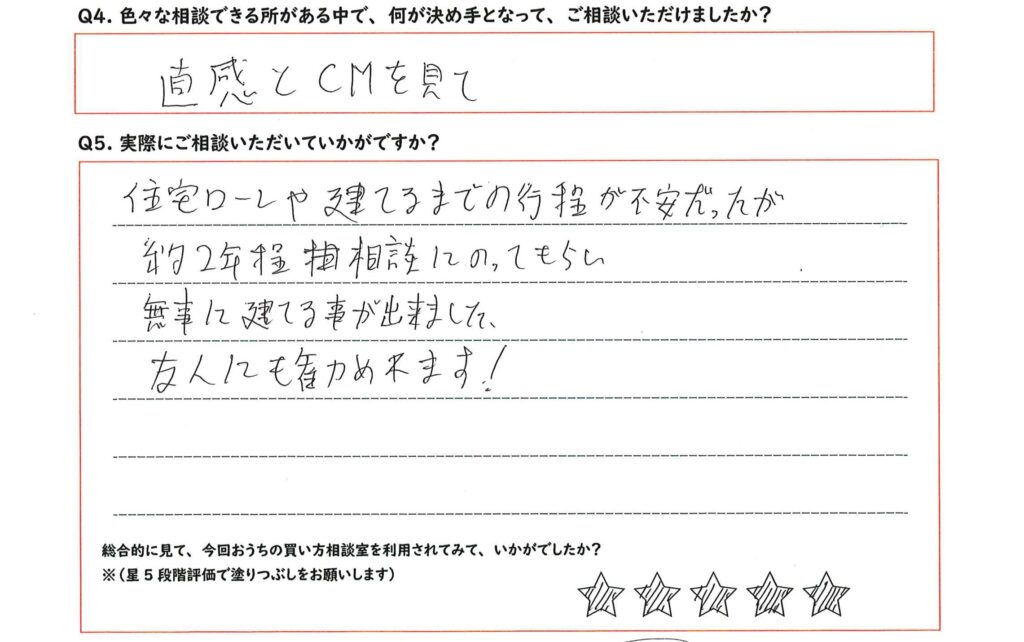 Q4. 色々な相談できる所がある中で、何が決め手となって、ご相談いただけましたか？
直感とCMを見て
Q5. 実際にご相談いただいていかがですか？
住宅ローンや建てるまでの行程が不安だったが
約2年程相談にのってもらい
無事に建てる事が出来ました、
友人にも勧め来ます!
総合的に見て、今回おうちの買い方相談室を利用されてみて、いかがでしたか？
※（星5段階評価で塗りつぶしをお願いします）